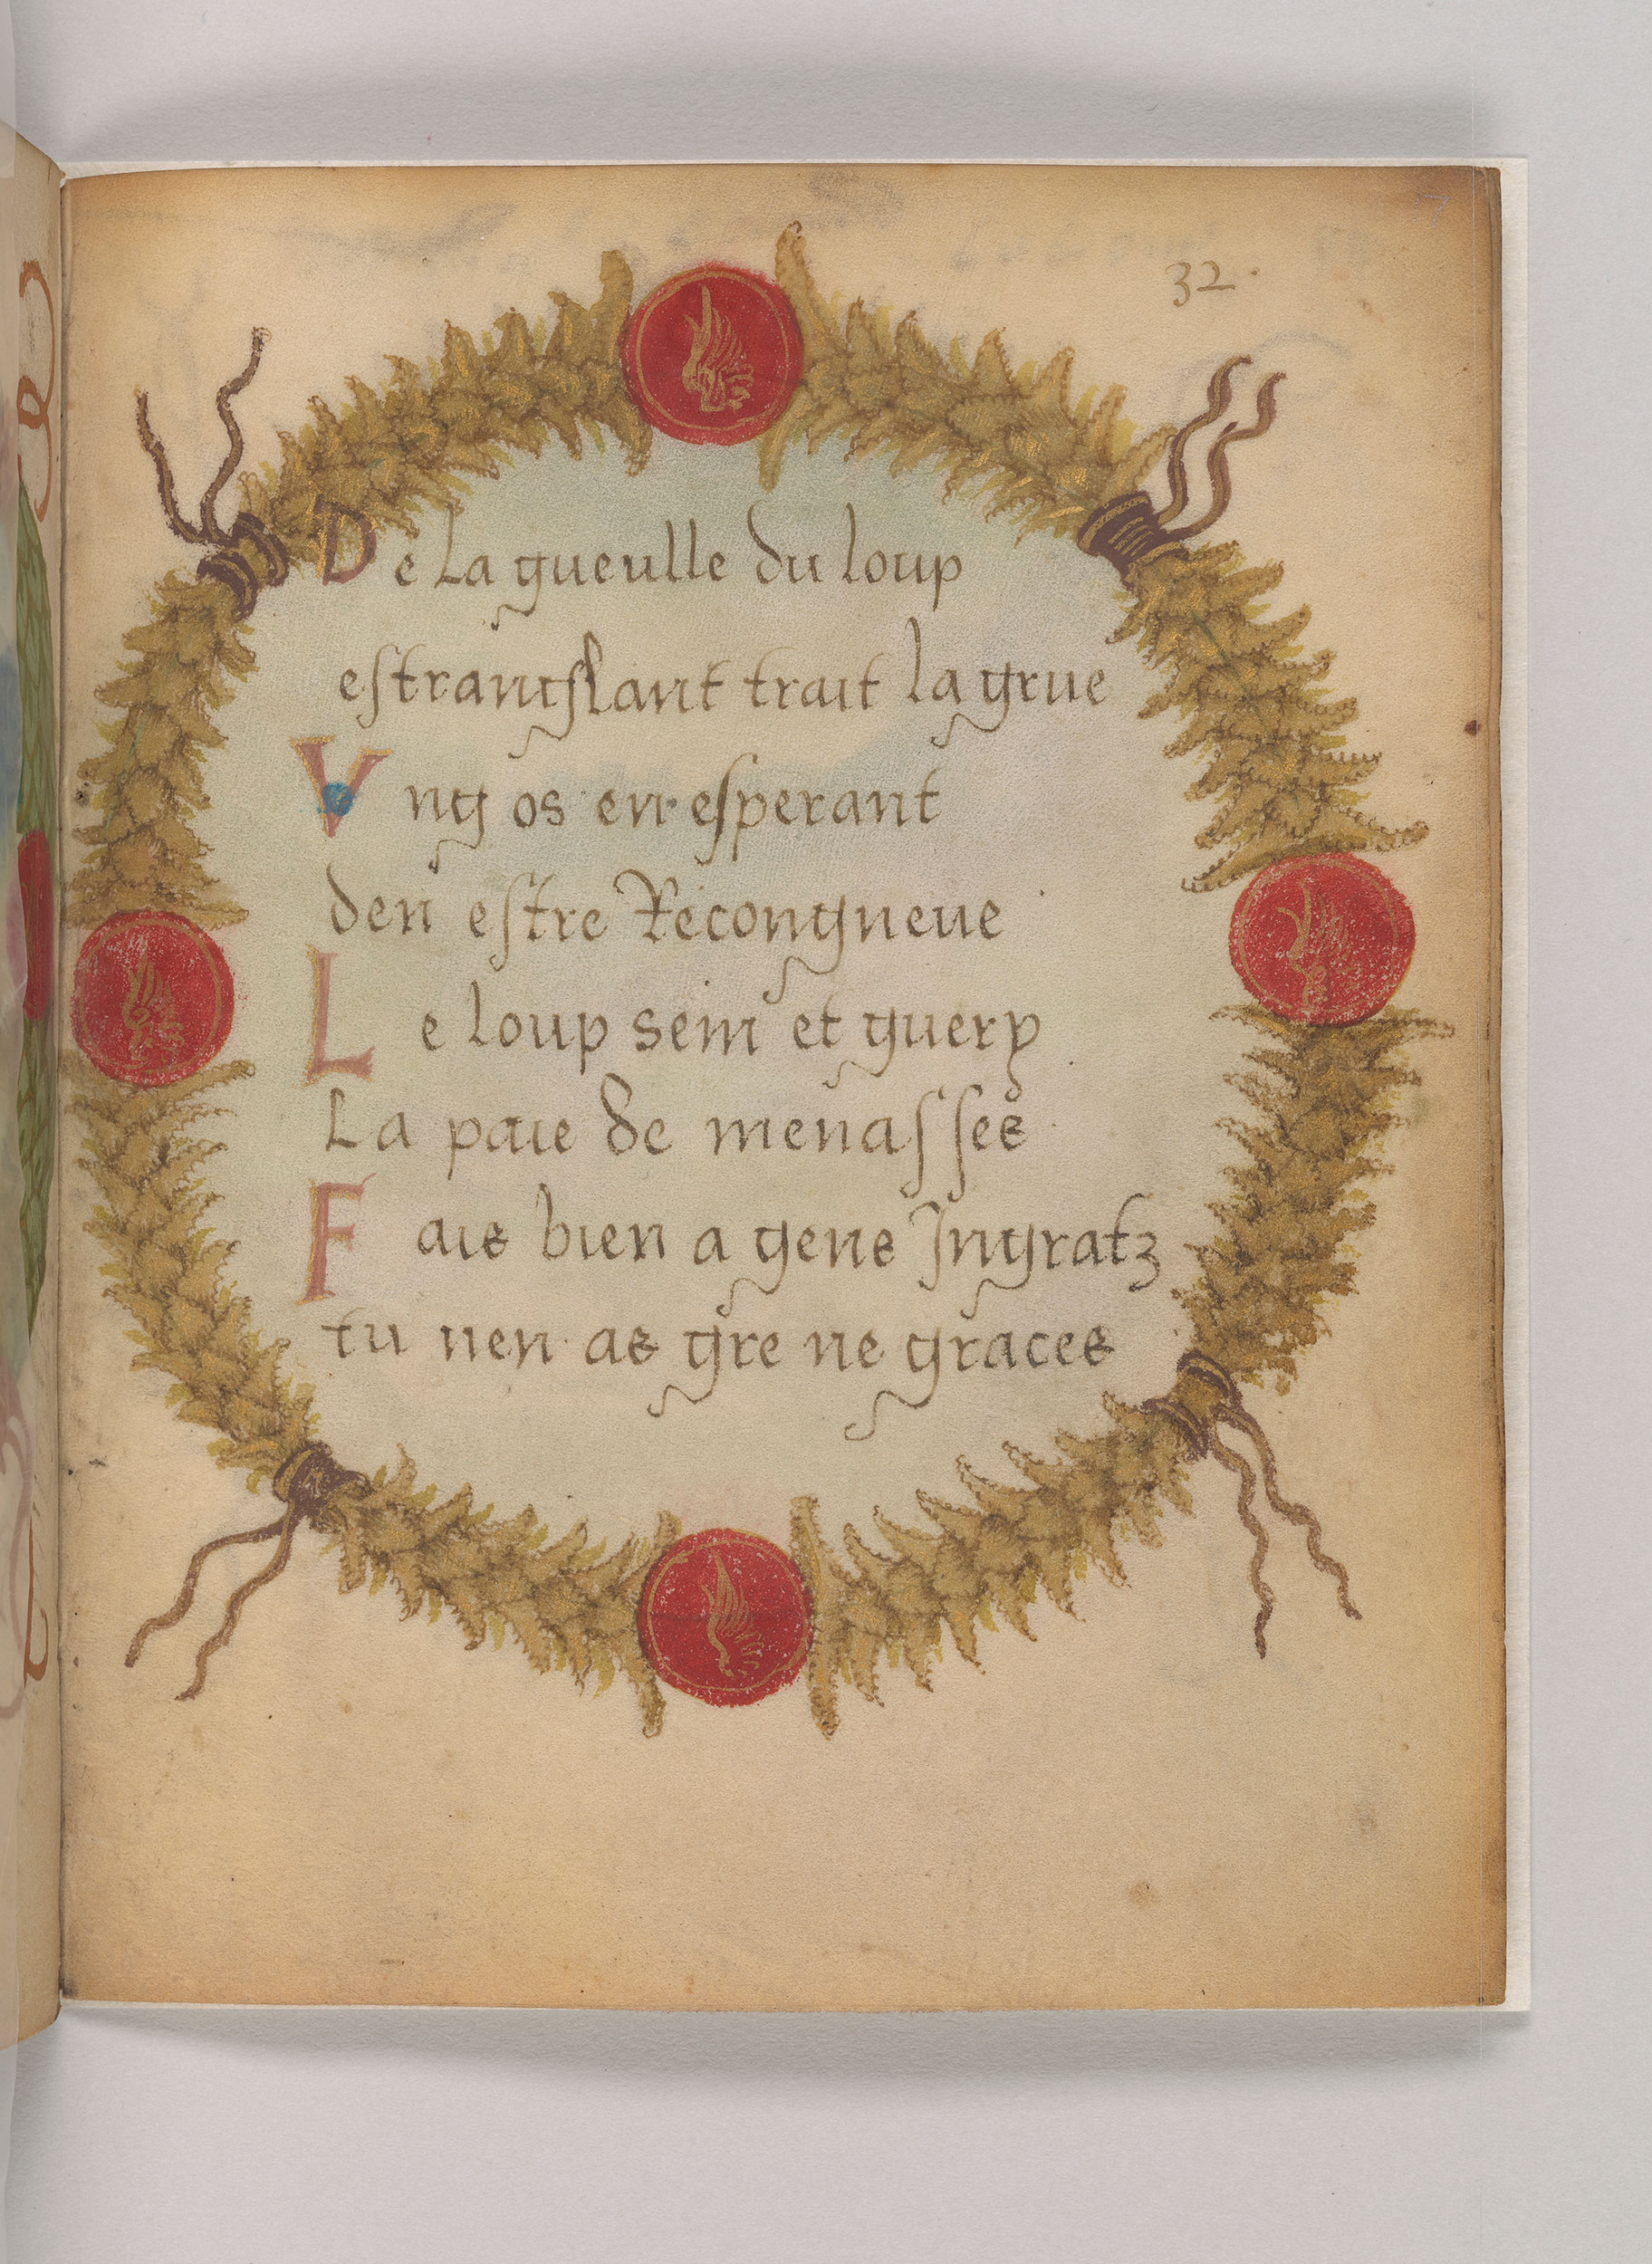 17
32.
De la gueulle du loup
estranglant trait la grue
Vng os en esperant
den estre Recongneue
Le loup sein et guery
La paie de menasses
Fais bien a gens Ingratz
tu nen as gre ne graces